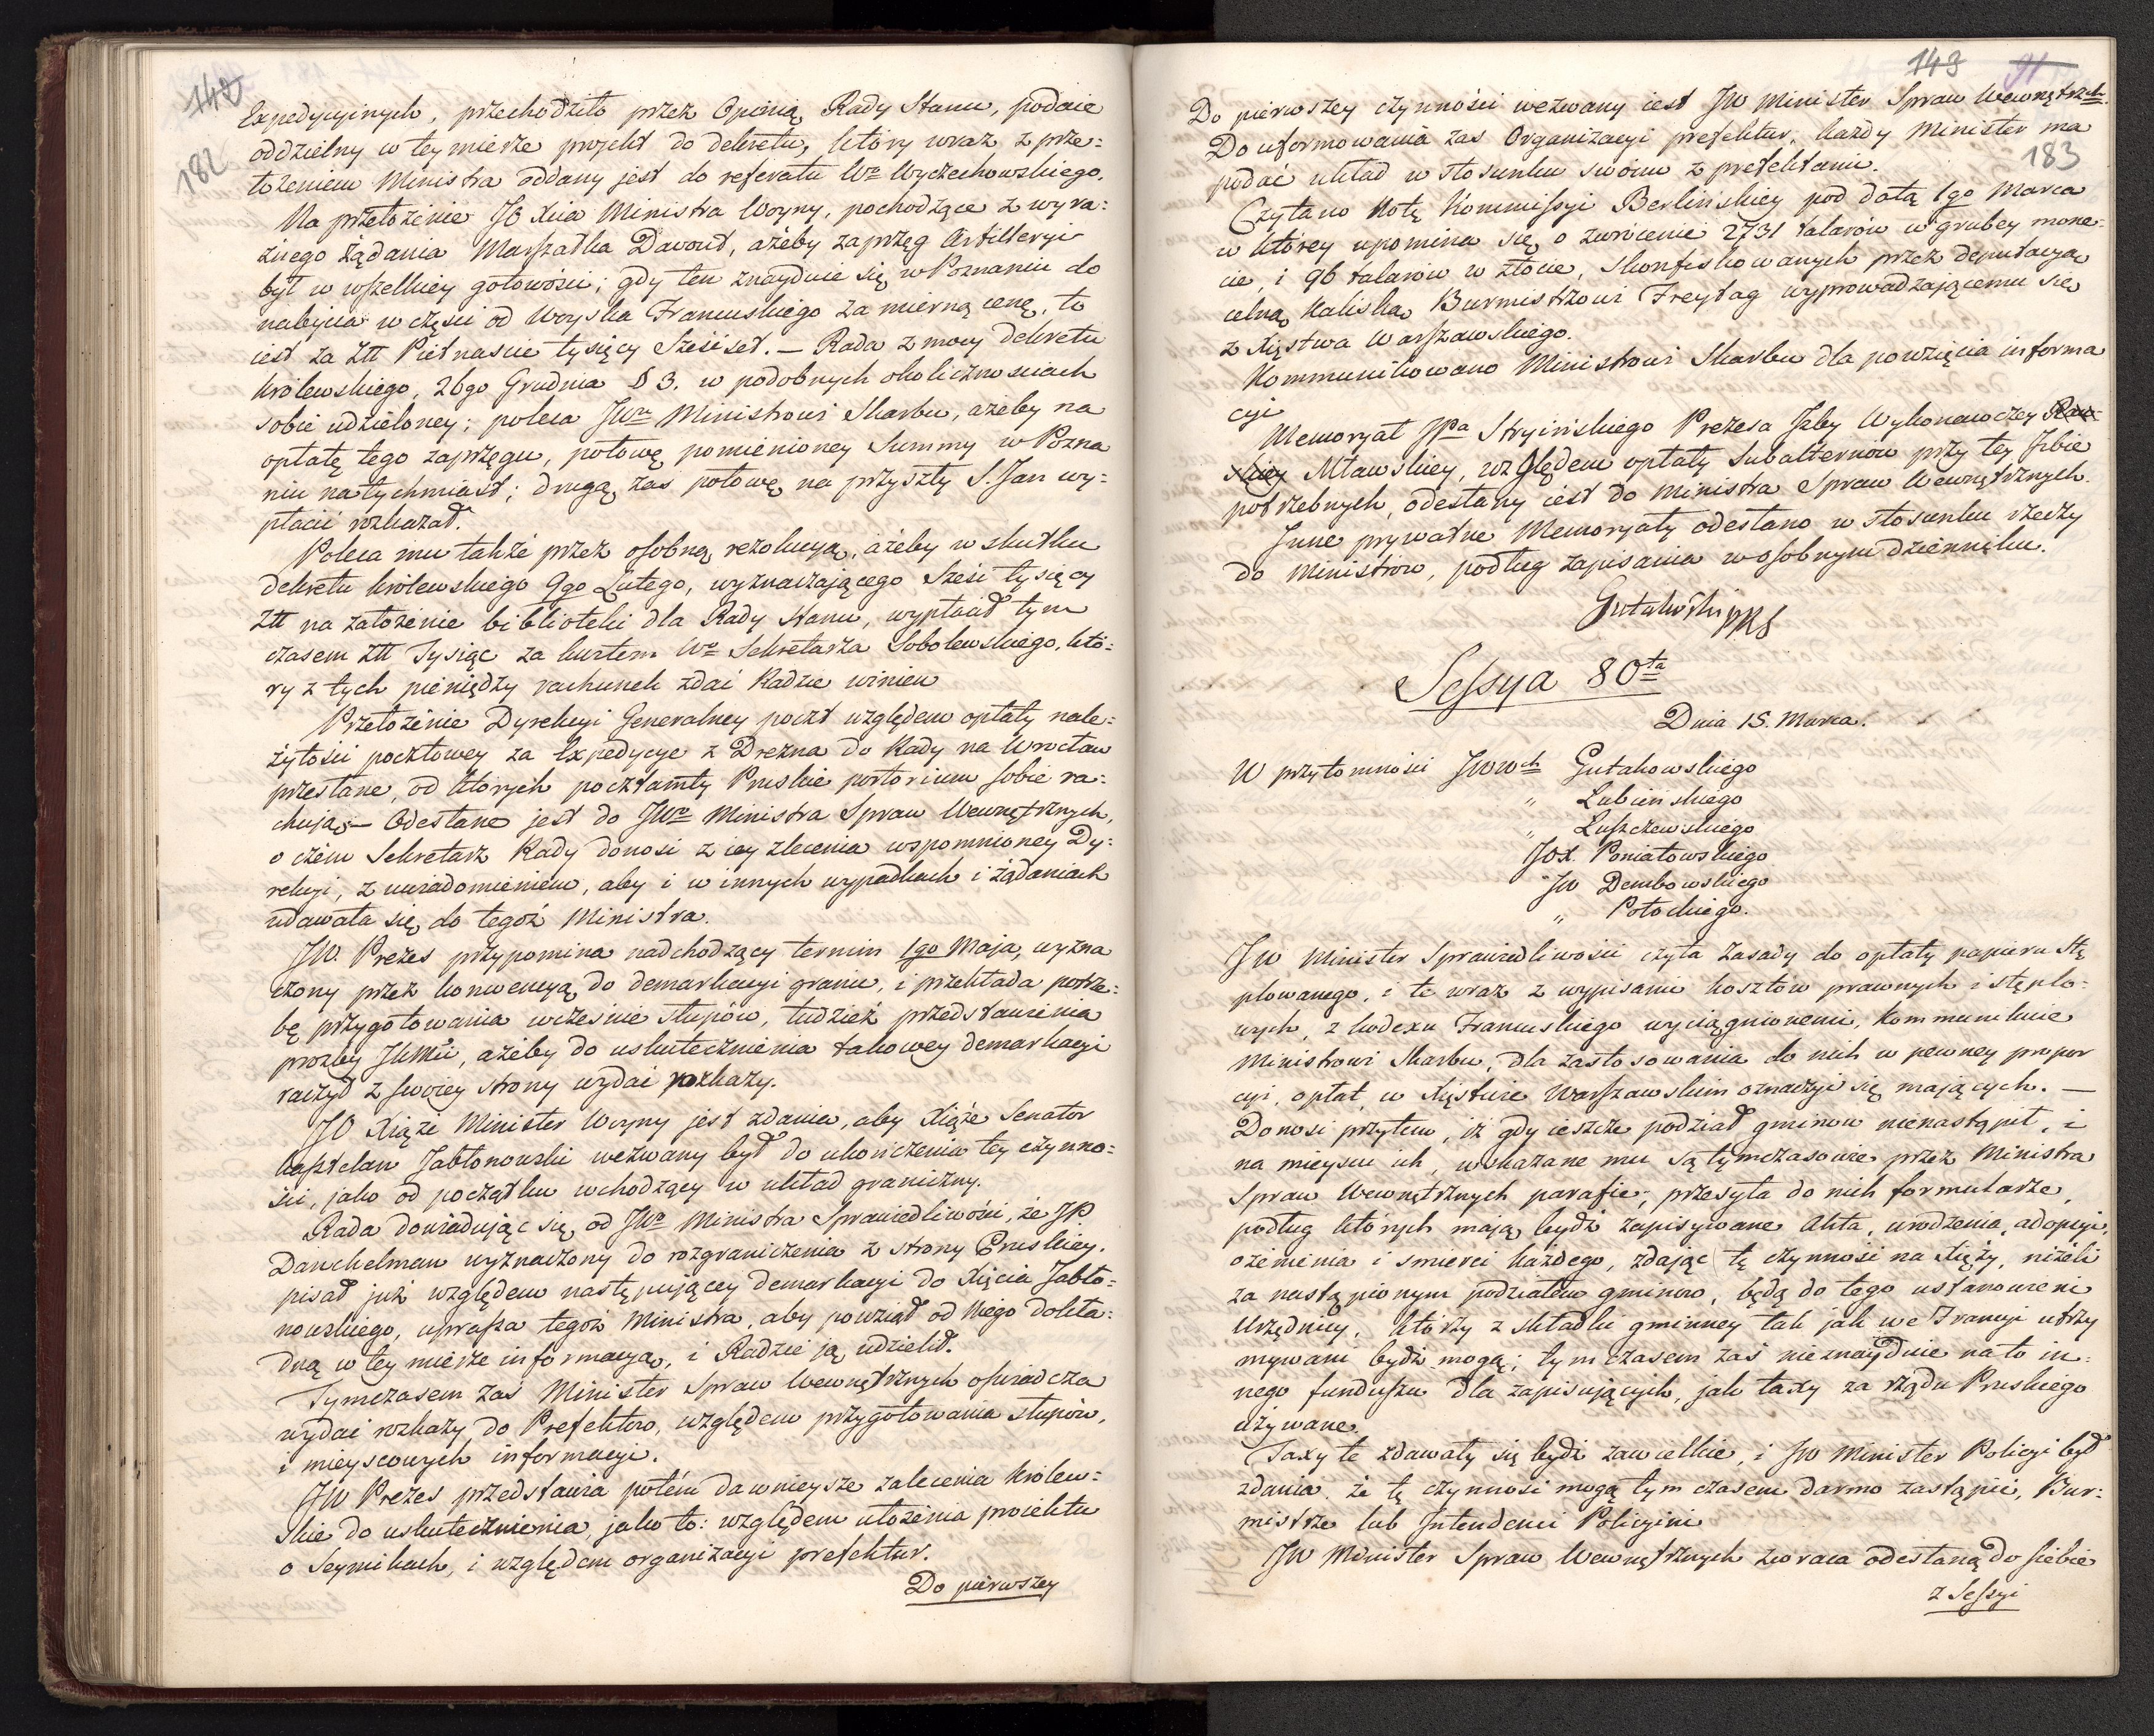 148
182
Expedycyinych, przechodziło przez Opinią Rady Stanu, podaie
oddzielny w tey mierze projekt do dekretu, który wraz z prze=
łożeniem Ministra oddany jest do referatu Wo Wyczechowskiego.
Na przełożenie JO Xcia Ministra Woyny, pochodzące z wyra=
źnego żądania Marszałka Davout, ażeby zaprzęg Artilleryi
był w wszelkiey gotowości; gdy ten znayduie się w Poznaniu do
nabycia w części od Woyska Francuskiego za mierną cenę, to
iest za Złł Piętnaście tysięcy sześćset. — Rada z mocy dekretu
Królewskiego, 26go Grudnia § 3. w podobnych okolicznościach
sobie udzieloney; poleca JWu Ministrowi Skarbu, ażeby na
opłatę tego zaprzęgu, połowę pomienioney Summy w Pozna
niu natychmiast; drugą zas połowę na przyszły S. Jan wy=
płacić rozkazał.
Poleca mu także przez osobną rezolucyą, ażeby w skutku
dekretu królewskiego 9go Lutego, wyznaczaiącego Sześć tysięcy
Złł na założenie biblioteki dla Rady Stanu, wypłacił tym
czasem Złł Tysiąc za kwitem Wo Sekretarza Sobolewskiego, któ=
ry z tych pieniędzy rachunek zdać Radzie winien
Przełożenie Dyrekcyi Generalney poczt względem opłaty nale=
żytości pocztowey za Expedycye z Drezna do Rady na Wrocław
przesłane, od których pocztamty Pruskie portorium sobie ra=
chują, — Odesłane jest do JWo Ministra Spraw Wewnętrznych,
o czem Sekretarz Rady donosi z iey zlecenia wspomnioney Dy=
rekcyi, z uwiadomieniem, aby i w innych wypadkach i żądaniach
udawała się do tegoż Ministra.
JW. Prezes przypomina nadchodzący termin 1go Maja, wyzna
czony przez konwencyą do demarkacyi granic, i przekłada potrze=
bę przygotowania wcześnie słupów, tudzież przedstawienia
prozby JKMci, ażeby do uskutecznienia takowey demarkacyi
raczył z swoiey strony wydać rozkazy.
JO Xiąże Minister Woyny jest zdania, aby Xiąże Senator
kasztelan Jabłonowski wezwany był do ukończenia tey czynno=
ści, jako od początku wchodzący w układ graniczny.
Rada dowiadując się od JWo Ministra Sprawiedliwości, że JP
Danchelman wyznaczony do rozgraniczenia z strony Pruskiey.
pisał już względem następującey demarkacyi do Xięcia Jabło=
nowskiego, uprasza tegoż Ministra, aby powziął od Niego dokła=
dną w tey mierze informacyą, i Radzie ją udzielił.
Tymczasem zaś Minister Spraw Wewnętrznych oświadcza
wydać rozkazy do Prefektów, względem przygotowania słupów,
i mieyscowych informacyi.
JW Prezes przedstawia potém dawnieysze zalecenia Królew=
skie do uskutecznienia, jako to: względem ułożenia proiektu
o Seymikach, i względem organizacyi prefektur.
Do piérwszey
149
183
Do piérwszey czynności wezwany iest JW Minister Spraw Wewnętrzch.
Do uformowania zas Organizacyi prefektur, każdy Minister ma
podać układ w stosunku swoim z prefektami.
Czytano Notę Kommissyi Berlińskiey pod datą 1go Marca
w którey upomina się o zwrócenie 2731 talarów w grubey mone=
cie, i 96 talarów w złocie, skonfiskowanych przez deputacyą
celną Kaliską Burmistrzowi Freytag wyprowadzającemu się
z Xięstwa Warszawskiego.
Kommunikowano Ministrowi Skarbu dla powzięcia informa
cyi
Memoryał JPa Stryińskiego Prezesa Izby Wykonawczey Raw=
skiey Mławskiey, względem opłaty Subalternów przy tey Izbie
potrzebnych, odesłany iest do Ministra Spraw Wewnętrznych.
Inne prywatne Memoryały odesłano w stosunku rzeczy
do Ministrów, podług zapisania w osobnym dzienniku.
Gutakowski PRS
Sessya 80ta
Dnia 15. Marca.
W przytomności JWWch Gutakowskiego
„ Lubieńskiego
„ Łuszczewskiego
JOX. Poniatowskiego
JW Dembowskiego
„ Potockiego.
JW Minister Sprawiedliwości czyta Zasady do opłaty papieru stę
plowanego, i te wraz z wypisami kosztów prawnych i stęplo=
wych, z kodexu Francuskiego wyciągnionemi, kommunikuie
Ministrowi Skarbu, dla zastosowania do nich w pewney propor
cyi, opłat, w Xięstwie Warszawskim oznaczyć się mających. —
Donosi przytem, iż gdy ieszcze podział gminow nienastąpił, i
na mieyscu ich, wskazane mu są tymczasowie przez Ministra
Spraw Wewnętrznych parafie; przesyła do nich formularze,
podług których mają bydź zapisywane Akta, urodzenia, adopcyi,
ożenienia i smierci każdego, zdając tę czynność na Xięży, niżeli
za nastąpionym podziałem gminow, będą do tego ustanowieni
Urzędnicy, którzy z składki gminney tak jak we Francyi utrzy
mywani bydź mogą; tym czasem zaś nieznayduie na to in=
nego funduszu dla zapisujących, jak taxy za rządu Pruskiego
używane.
Taxy te zdawały się bydź zawielkie, i JW Minister Policyi był
zdania, że tę czynność mogą tym czasem darmo zastąpić, Bur=
mistrze lub Intendenci Policyini
JW Minister Spraw Wewnętrznych zwraca odesłaną do siebie
z Sessyi